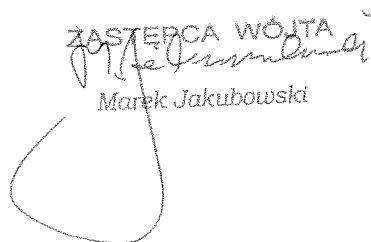 ZASTĘPCA WÓJTA
Marek Jakubowski